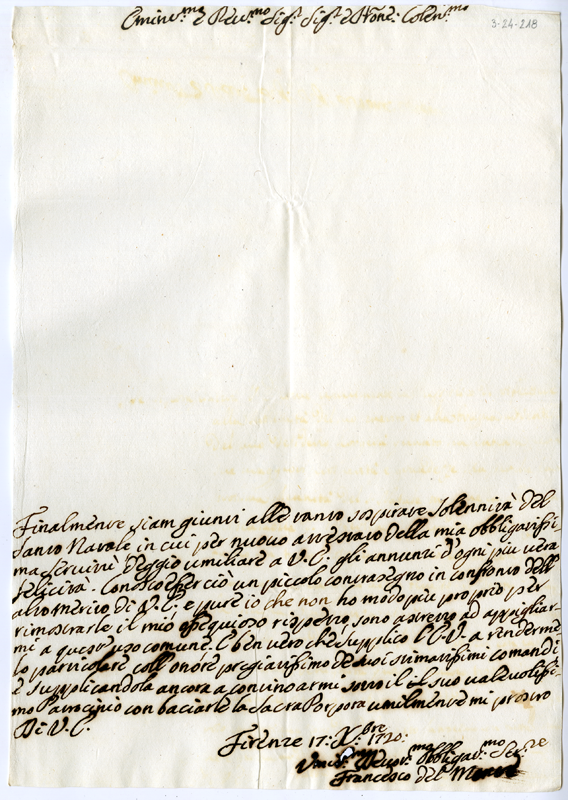 Emin.mo e Rev.mo Sig.r Sig.r e Pñone Colen.mo
3-24-218
Finalmente siam giunti alle tanto sospirate solennità del
Santo Natale in cui per nuovo attestato della mia obbligatissi-
ma servitù deggio umiliare a V.E. gli annunzi d'ogni più vera
felicità. Conosco esser ciò un piccolo contrasegno in confronto dell'
alto merito di V.E. e pure io che non ho modo più proprio per
rimostrarle il mio ossequioso rispetto, sono astretto ad appigliar-
mi a quest'uso comune. È ben vero che supplico l'E.V. a rendermi-
lo particolare coll'onore pregiatissimo de suoi stimatissimi comandi
e supplicandola ancora a continoarmi sotto il suo valevolissi-
mo Patrocinio con baciarle la Sacra Porpora umilmente mi protesto
Di V.E.
Firenze 17: X.bre 1720:
Umil.mo Devot.mo Obbligat.mo Ser.re
Francesco del